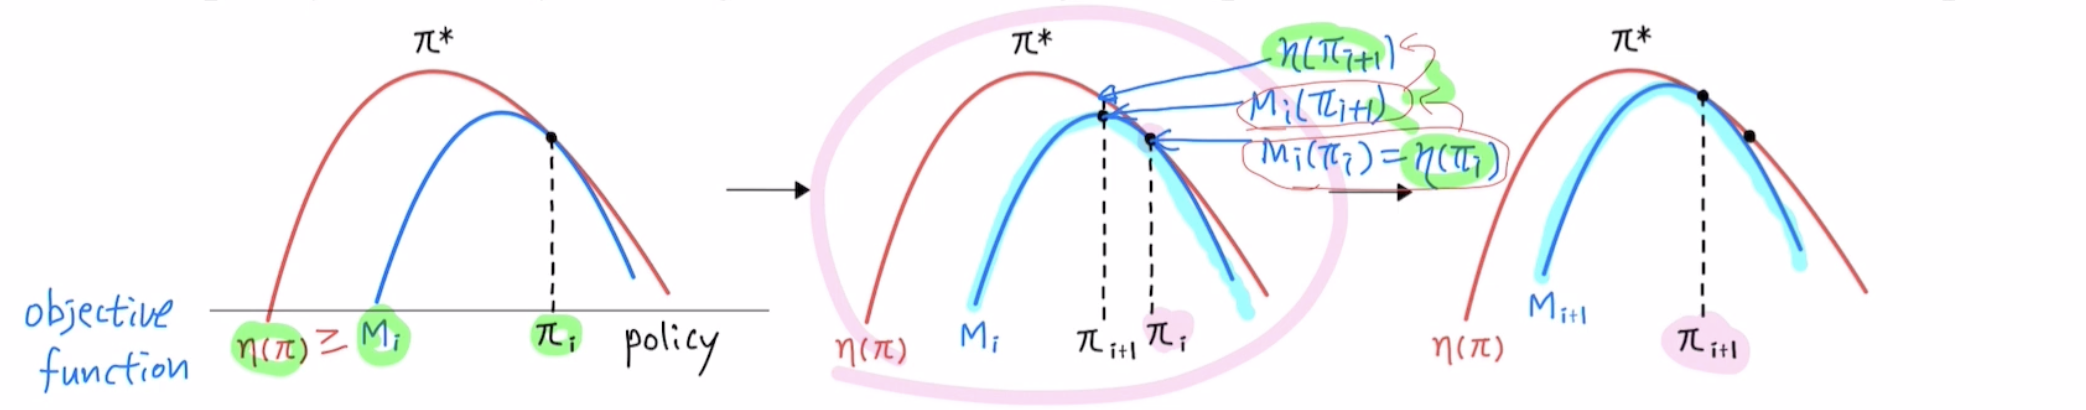 π*
objective
function
η(π) ≥ Mᵢ
πᵢ
policy
π*
η(πᵢ₊₁)
Mᵢ(πᵢ₊₁)
Mᵢ(πᵢ) = η(πᵢ)
η(π)
Mᵢ
πᵢ₊₁
πᵢ
π*
η(π)
Mᵢ₊₁
πᵢ₊₁